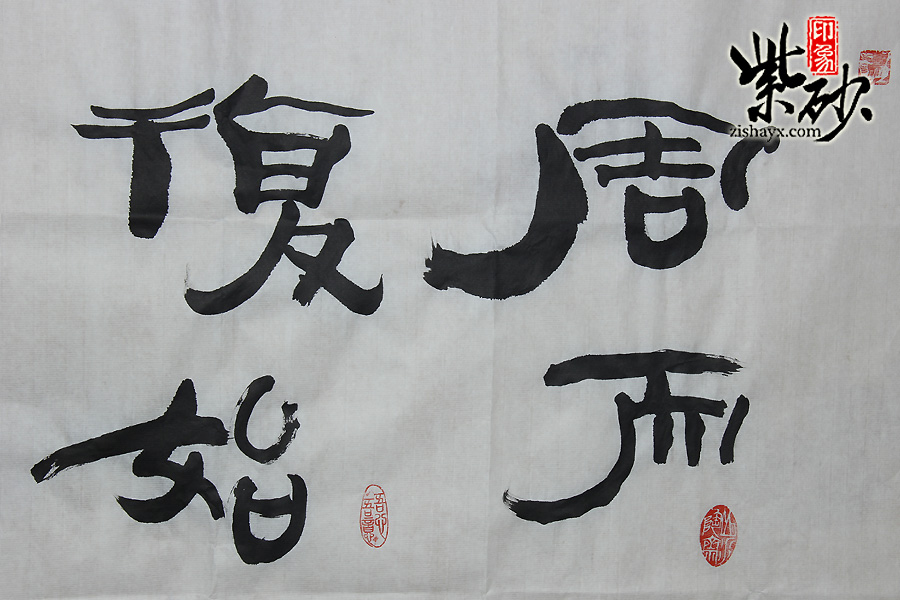 周而
復始
印象
紫砂
zishayx.com